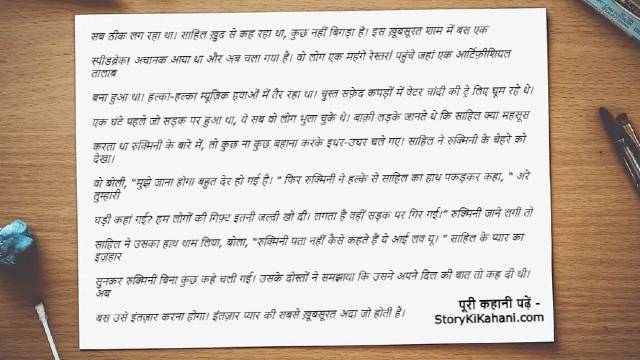 सब ठीक लग रहा था। साहिल ख़ुद से कह रहा था, कुछ नहीं बिगड़ा है। इस ख़ूबसूरत शाम में बस एक
स्पीडब्रेकर अचानक आया था और अब चला गया है। वो लोग एक महंगे रेस्तरां पहुंचे जहां एक आर्टिफ़ीशियल
तालाब
बना हुआ था। हल्का-हल्का म्यूज़िक हवाओं में तैर रहा था। चुस्त सफ़ेद कपड़ों में वेटर चांदी की ट्रे लिए घूम रहे थे।
एक घंटे पहले जो सड़क पर हुआ था, ये सब वो लोग भुला चुके थे। बाक़ी लड़के जानते थे कि साहिल क्या महसूस
करता था रुक्मिनी के बारे में, तो कुछ ना कुछ बहाना करके इधर-उधर चले गए। साहिल ने रुक्मिनी के चेहरे को
देखा।
वो बोली, “मुझे जाना होगा बहुत देर हो गई है। ” फिर रुक्मिनी ने हल्के से साहिल का हाथ पकड़कर कहा, “ अरे
तुम्हारी
घड़ी कहां गई? हम लोगों की गिफ़्ट इतनी जल्दी खो दी। लगता है वहीं सड़क पर गिर गई।” रुक्मिनी जाने लगी तो
साहिल ने उसका हाथ थाम लिया, बोला, “रुक्मिनी पता नहीं कैसे कहते हैं ये आई लव यू। ” साहिल के प्यार का
इज़हार
सुनकर रुक्मिनी बिना कुछ कहे चली गई। उसके दोस्तों ने समझाया कि उसने अपने दिल की बात तो कह दी थी।
अब
बस उसे इंतज़ार करना होगा। इंतज़ार प्यार की सबसे ख़ूबसूरत अदा जो होती है।
पूरी कहानी पढ़ें -
StoryKiKahani.com